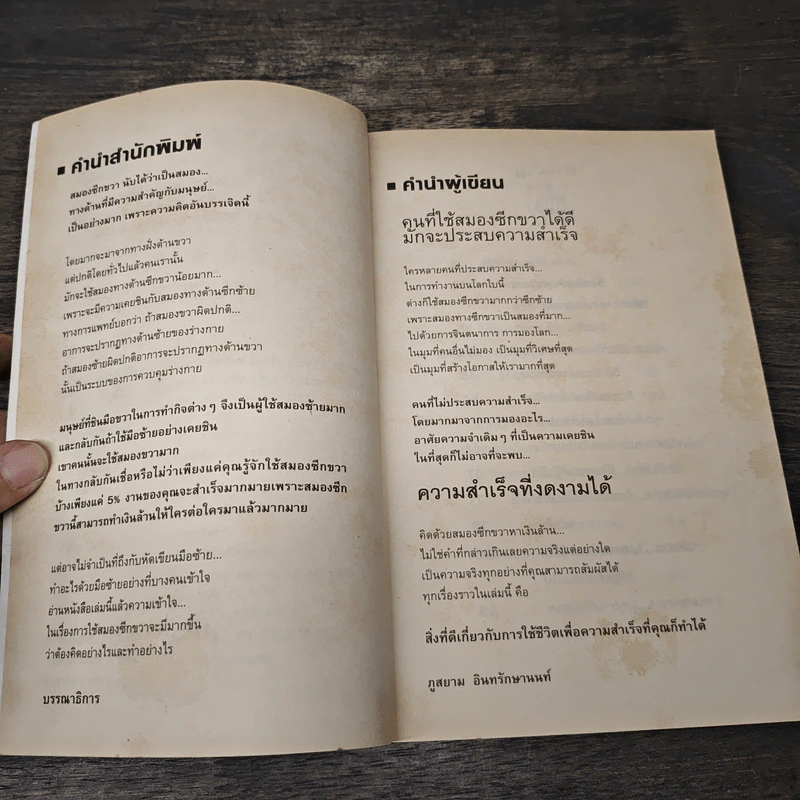 ■ คำนำสำนักพิมพ์
สมองซีกขวา นับได้ว่าเป็นสมอง...
ทางด้านที่มีความสำคัญกับมนุษย์...
เป็นอย่างมาก เพราะความคิดอันบรรเจิดนี้
โดยมากจะมาจากทางฝั่งด้านขวา
แต่ปกติโดยทั่วไปแล้วคนเรานั้น
มักจะใช้สมองทางด้านซีกขวาน้อยมาก...
เพราะจะมีความเคยชินกับสมองทางด้านซีกซ้าย
ทางการแพทย์บอกว่า ถ้าสมองขวาผิดปกติ...
อาการจะปรากฏทางด้านซ้ายของร่างกาย
ถ้าสมองซ้ายผิดปกติอาการจะปรากฏทางด้านขวา
นั้นเป็นระบบของการควบคุมร่างกาย
มนุษย์ที่ชินมือขวาในการทำกิจต่าง ๆ จึงเป็นผู้ใช้สมองซ้ายมาก
และกลับกันถ้าใช้มือซ้ายอย่างเคยชิน
เขาคนนั้นจะใช้สมองขวามาก
ในทางกลับกันเชื่อหรือไม่ว่าเพียงแค่คุณรู้จักใช้สมองซีกขวา
บ้างเพียงแค่ 5% งานของคุณจะสำเร็จมากมายเพราะสมองซีก
ขวานี้สามารถทำเงินล้านให้ใครต่อใครมาแล้วมากมาย
แต่อาจไม่จำเป็นที่ถึงกับหัดเขียนมือซ้าย...
ทำอะไรด้วยมือซ้ายอย่างที่บางคนเข้าใจ
อ่านหนังสือเล่มนี้แล้วความเข้าใจ...
ในเรื่องการใช้สมองซีกขวาจะมีมากขึ้น
ว่าต้องคิดอย่างไรและทำอย่างไร
บรรณาธิการ
■ คำนำผู้เขียน
คนที่ใช้สมองซีกขวาได้ดี
มักจะประสบความสำเร็จ
ใครหลายคนที่ประสบความสำเร็จ...
ในการทำงานบนโลกใบนี้
ต่างก็ใช้สมองซีกขวามากกว่าซีกซ้าย
เพราะสมองทางซีกขวาเป็นสมองที่มาก...
ไปด้วยการจินตนาการ การมองโลก...
ในมุมที่คนอื่นไม่มอง เป็นมุมที่วิเศษที่สุด
เป็นมุมที่สร้างโอกาสให้เรามากที่สุด
คนที่ไม่ประสบความสำเร็จ...
โดยมากมาจากการมองอะไร...
อาศัยความจำเดิม ๆ ที่เป็นความเคยชิน
ในที่สุดก็ไม่อาจที่จะพบ...
ความสำเร็จที่งดงามได้
คิดด้วยสมองซีกขวาหาเงินล้าน...
ไม่ใช่คำที่กล่าวเกินเลยความจริงแต่อย่างใด
เป็นความจริงทุกอย่างที่คุณสามารถสัมผัสได้
ทุกเรื่องราวในเล่มนี้ คือ
สิ่งที่ดีเกี่ยวกับการใช้ชีวิตเพื่อความสำเร็จที่คุณก็ทำได้
ภูสยาม อินทรักษานนท์